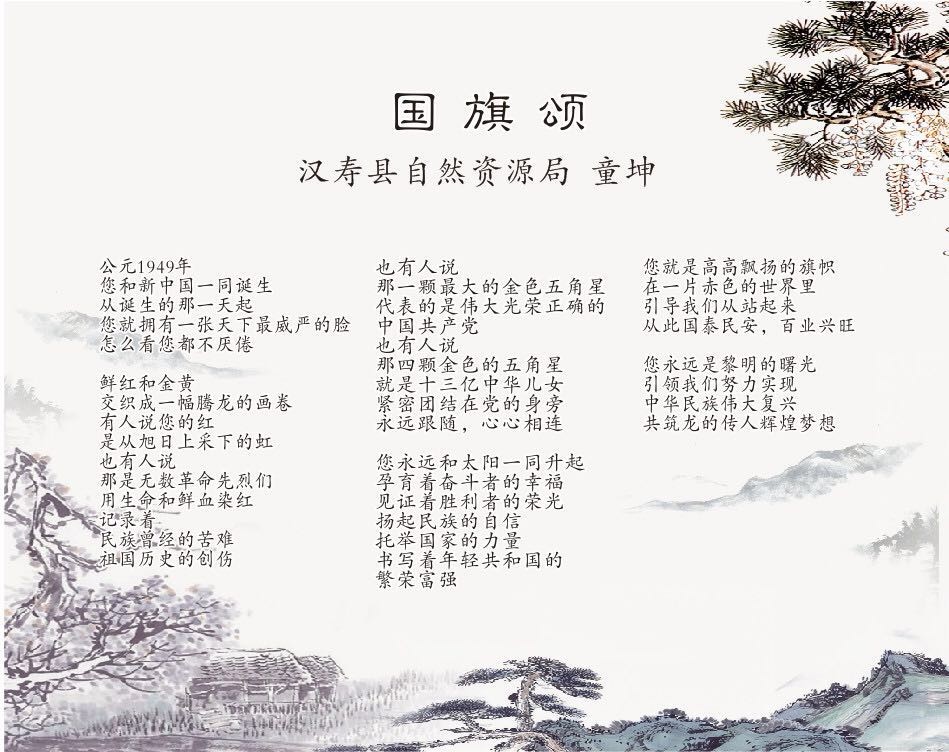 国旗颂
汉寿县自然资源局 童坤
公元1949年
您和新中国一同诞生
从诞生的那一天起
您就拥有一张天下最威严的脸
怎么看您都不厌倦
鲜红和金黄
交织成一幅腾龙的画卷
有人说您的红
是从旭日上采下的虹
也有人说
那是无数革命先烈们
用生命和鲜血染红
记录着
民族曾经的苦难
祖国历史的创伤
也有人说
那一颗最大的金色五角星
代表的是伟大光荣正确的
中国共产党
也有人说
那四颗金色的五角星
就是十三亿中华儿女
紧密团结在党的身旁
永远跟随，心心相连
您永远和太阳一同升起
孕育着奋斗者的幸福
见证着胜利者的荣光
扬起民族的自信
托举国家的力量
书写着年轻共和国的
繁荣富强
您就是高高飘扬的旗帜
在一片赤色的世界里
引导我们从站起来
从此国泰民安，百业兴旺
您永远是黎明的曙光
引领我们努力实现
中华民族伟大复兴
共筑龙的传人辉煌梦想